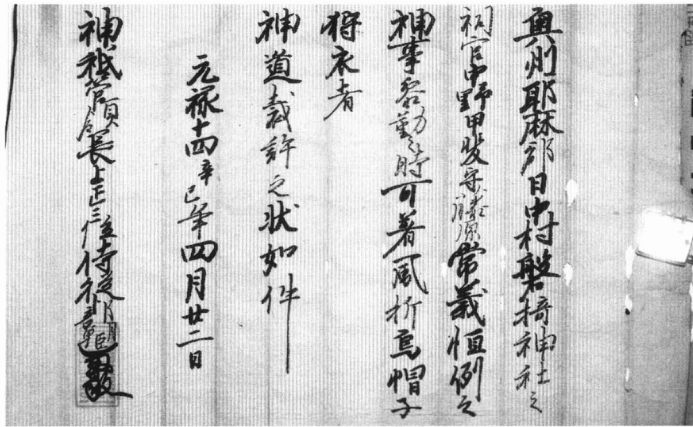 奥州耶麻郡日中村磐椅神社之
祠官中野甲斐守藤原常義恒例之
神事参勤之時可着風折烏帽子
狩衣者
神道裁許之状如件
元禄十四辛巳年四月廿二日
神祇管領長上正三位侍従卜部兼敬